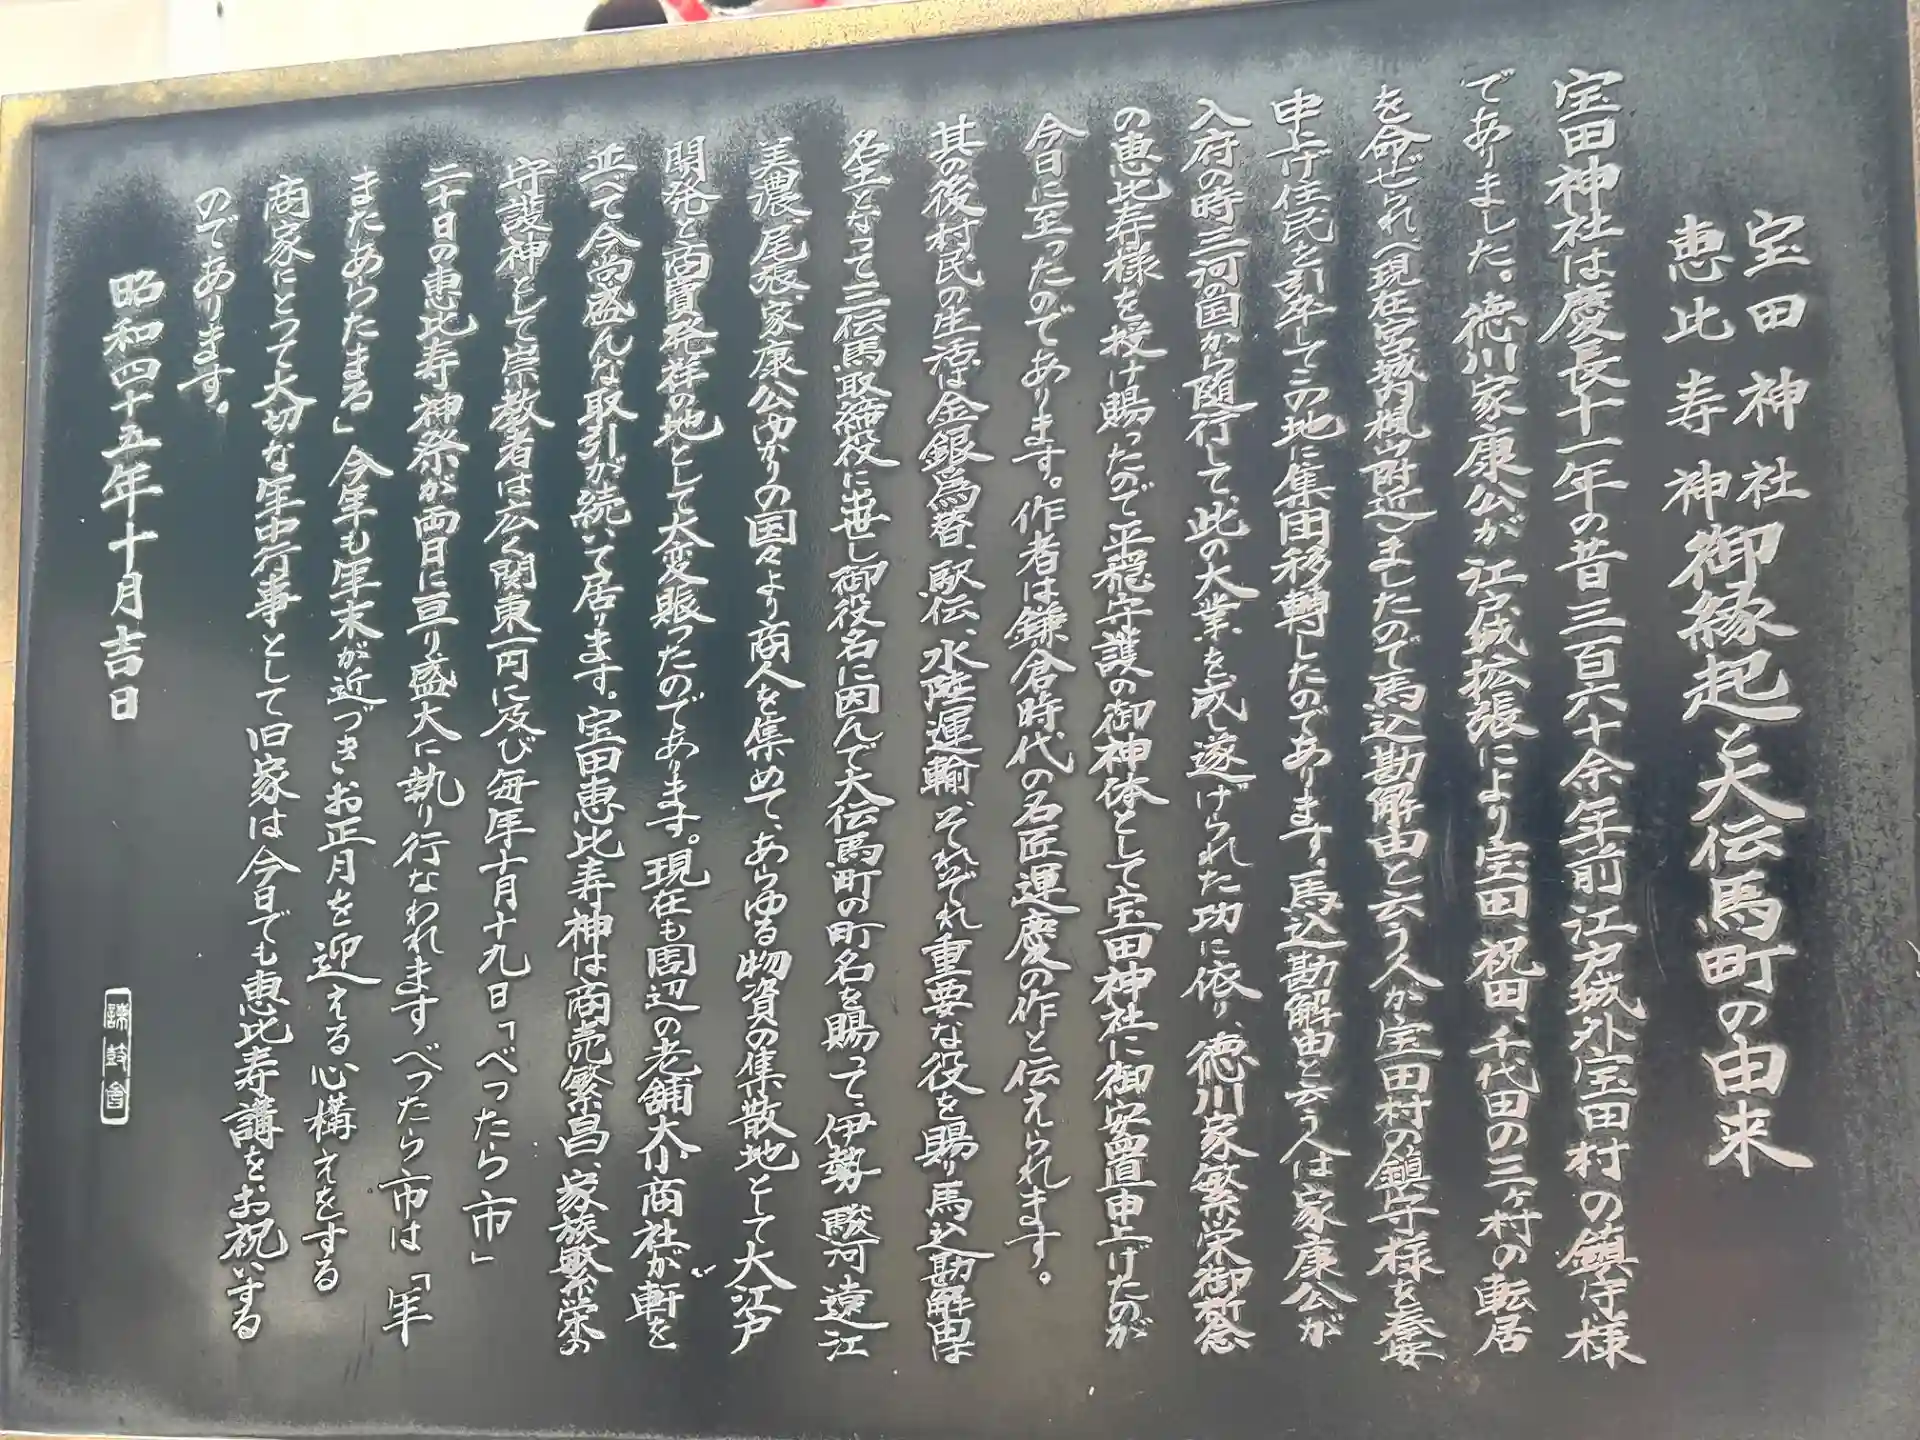 宝田神社
恵比寿神
御縁起と大伝馬町の由来
宝田神社は慶長十一年の昔三百六十余年前江戸城外宝田村の鎮守様
でありました。徳川家康公が江戸城拡張により宝田、祝田、千代田の三ヶ村の転居
を命ぜられ、(現在宮城内楓山附近)ましたので馬込勘解由と云う人が宝田村の鎮守様を奉安
申上げ住民を引率してこの地に集団移転したのであります。馬込勘解由と云う人は家康公が
入府の時三河の国から随行して、此の大業を成し遂げられた功に依り、徳川家繁栄御祈念
の恵比寿様を授け賜ったので平穏守護の御神体として宝田神社に御安置申上げたのが
今日に至ったのであります。作者は鎌倉時代の名匠運慶の作と伝えられます。
其の後村民の生活は金銀為替、駅伝、水陸運輸、それぞれ重要な役を賜り馬込勘解由は
名主となって三伝馬取締役に出世し御役名に因んで大伝馬町の町名を賜って、伊勢駿河遠江
美濃、尾張、家康公ゆかりの国々より商人を集めて、あらゆる物資の集散地として大江戸
開発と商賣発祥の地として大変賑ったのであります。現在も周辺の老舗大小商社が軒を
並べて今尚盛んな取引が続いて居ります。宝田恵比寿神は商売繁昌、家族繁栄の
守護神として崇敬者は広く関東一円に及び毎年十月十九日「べったら市」
二十日の恵比寿神祭が両日に亘り盛大に執り行なわれますべったら市は「年
またあらたまる」今年も年末が近づきお正月を迎える心構えをする
商家にとって大切な年中行事として旧家は今日でも恵比寿講をお祝いする
のであります。
昭和四十五年十月吉日
諫鼓會